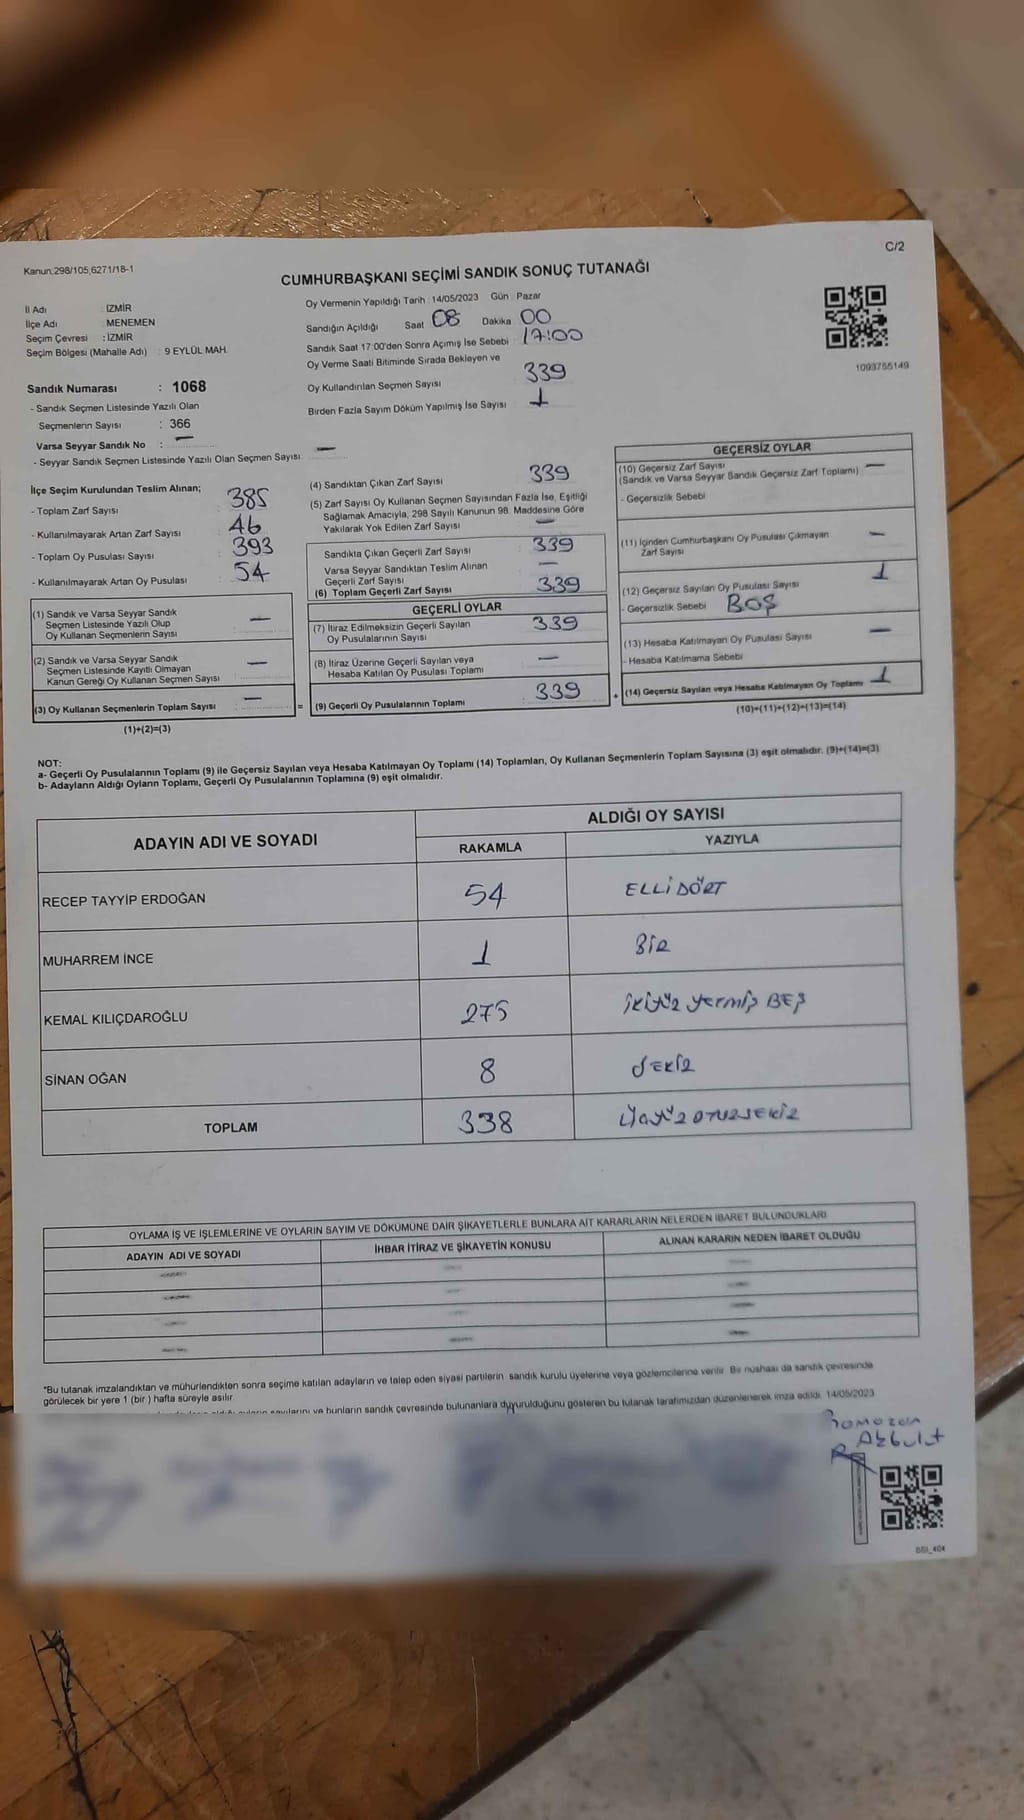 C/2
Kanun.298/105,6271/18-1
CUMHURBAŞKANI SEÇİMİ SANDIK SONUÇ TUTANAĞI
İl Adı : İZMİR
İlçe Adı : MENEMEN
Seçim Çevresi : İZMİR
Seçim Bölgesi (Mahalle Adı) : 9 EYLÜL MAH.
Oy Vermenin Yapıldığı Tarih : 14/05/2023 Gün : Pazar
Sandığın Açıldığı Saat 08 Dakika 00
Sandık Saat 17:00'den Sonra Açımış İse Sebebi : 17:00
Oy Verme Saati Bitiminde Sırada Bekleyen ve
Oy Kullandırılan Seçmen Sayısı 339
Birden Fazla Sayım Döküm Yapılmış İse Sayısı 1
1093755149
Sandık Numarası : 1068
- Sandık Seçmen Listesinde Yazılı Olan
Seçmenlerin Sayısı : 366
Varsa Seyyar Sandık No : —
- Seyyar Sandık Seçmen Listesinde Yazılı Olan Seçmen Sayısı : —
İlçe Seçim Kurulundan Teslim Alınan;
- Toplam Zarf Sayısı : 385
- Kullanılmayarak Artan Zarf Sayısı : 46
- Toplam Oy Pusulası Sayısı : 393
- Kullanılmayarak Artan Oy Pusulası : 54
(1) Sandık ve Varsa Seyyar Sandık
Seçmen Listesinde Yazılı Olup
Oy Kullanan Seçmenlerin Sayısı —
(2) Sandık ve Varsa Seyyar Sandık
Seçmen Listesinde Kayıtlı Olmayan
Kanun Gereği Oy Kullanan Seçmen Sayısı —
(3) Oy Kullanan Seçmenlerin Toplam Sayısı : —
(1)+(2)=(3)
(4) Sandıktan Çıkan Zarf Sayısı 339
(5) Zarf Sayısı Oy Kullanan Seçmen Sayısından Fazla İse, Eşitliği
Sağlamak Amacıyla, 298 Sayılı Kanunun 98. Maddesine Göre
Yakılarak Yok Edilen Zarf Sayısı —
Sandıkta Çıkan Geçerli Zarf Sayısı 339
Varsa Seyyar Sandıktan Teslim Alınan
Geçerli Zarf Sayısı —
(6) Toplam Geçerli Zarf Sayısı 339
GEÇERLİ OYLAR
(7) İtiraz Edilmeksizin Geçerli Sayılan
Oy Pusulalarının Sayısı 339
(8) İtiraz Üzerine Geçerli Sayılan veya
Hesaba Katılan Oy Pusulası Toplamı —
= (9) Geçerli Oy Pusulalarının Toplamı 339
GEÇERSİZ OYLAR
(10) Geçersiz Zarf Sayısı —
(Sandık ve Varsa Seyyar Sandık Geçersiz Zarf Toplamı)
- Geçersizlik Sebebi
(11) İçinden Cumhurbaşkanı Oy Pusulası Çıkmayan
Zarf Sayısı —
(12) Geçersiz Sayılan Oy Pusulası Sayısı 1
- Geçersizlik Sebebi BOŞ
(13) Hesaba Katılmayan Oy Pusulası Sayısı —
- Hesaba Katılmama Sebebi
+ (14) Geçersiz Sayılan veya Hesaba Katılmayan Oy Toplamı 1
(10)+(11)+(12)+(13)=(14)
NOT:
a- Geçerli Oy Pusulalarının Toplamı (9) ile Geçersiz Sayılan veya Hesaba Katılmayan Oy Toplamı (14) Toplamları, Oy Kullanan Seçmenlerin Toplam Sayısına (3) eşit olmalıdır. (9)+(14)=(3)
b- Adayların Aldığı Oyların Toplamı, Geçerli Oy Pusulalarının Toplamına (9) eşit olmalıdır.
ADAYIN ADI VE SOYADI
ALDIĞI OY SAYISI
RAKAMLA YAZIYLA
RECEP TAYYİP ERDOĞAN 54 ELLİ DÖRT
MUHARREM İNCE 1 BİR
KEMAL KILIÇDAROĞLU 275 İKİYÜZ YERMİŞ BEŞ
SİNAN OĞAN 8 SEKİZ
TOPLAM 338 ÜÇYÜZ OTUZSEKİZ
OYLAMA İŞ VE İŞLEMLERİNE VE OYLARIN SAYIM VE DÖKÜMÜNE DAİR ŞİKAYETLERLE BUNLARA AİT KARARLARIN NELERDEN İBARET BULUNDUKLARI
ADAYIN ADI VE SOYADI İHBAR İTİRAZ VE ŞİKAYETİN KONUSU ALINAN KARARIN NEDEN İBARET OLDUĞU
*Bu tutanak imzalandıktan ve mühürlendikten sonra seçime katılan adayların ve talep eden siyasi partilerin sandık kurulu üyelerine veya gözlemcilerine verilir. Bir nüshası da sandık çevresinde
görülecek bir yere 1 (bir) hafta süreyle asılır.
ve bunların sandık çevresinde bulunanlara duyurulduğunu gösteren bu tutanak tarafımızdan düzenlenerek imza edildi. 14/05/2023
Ramazan
Akbulut